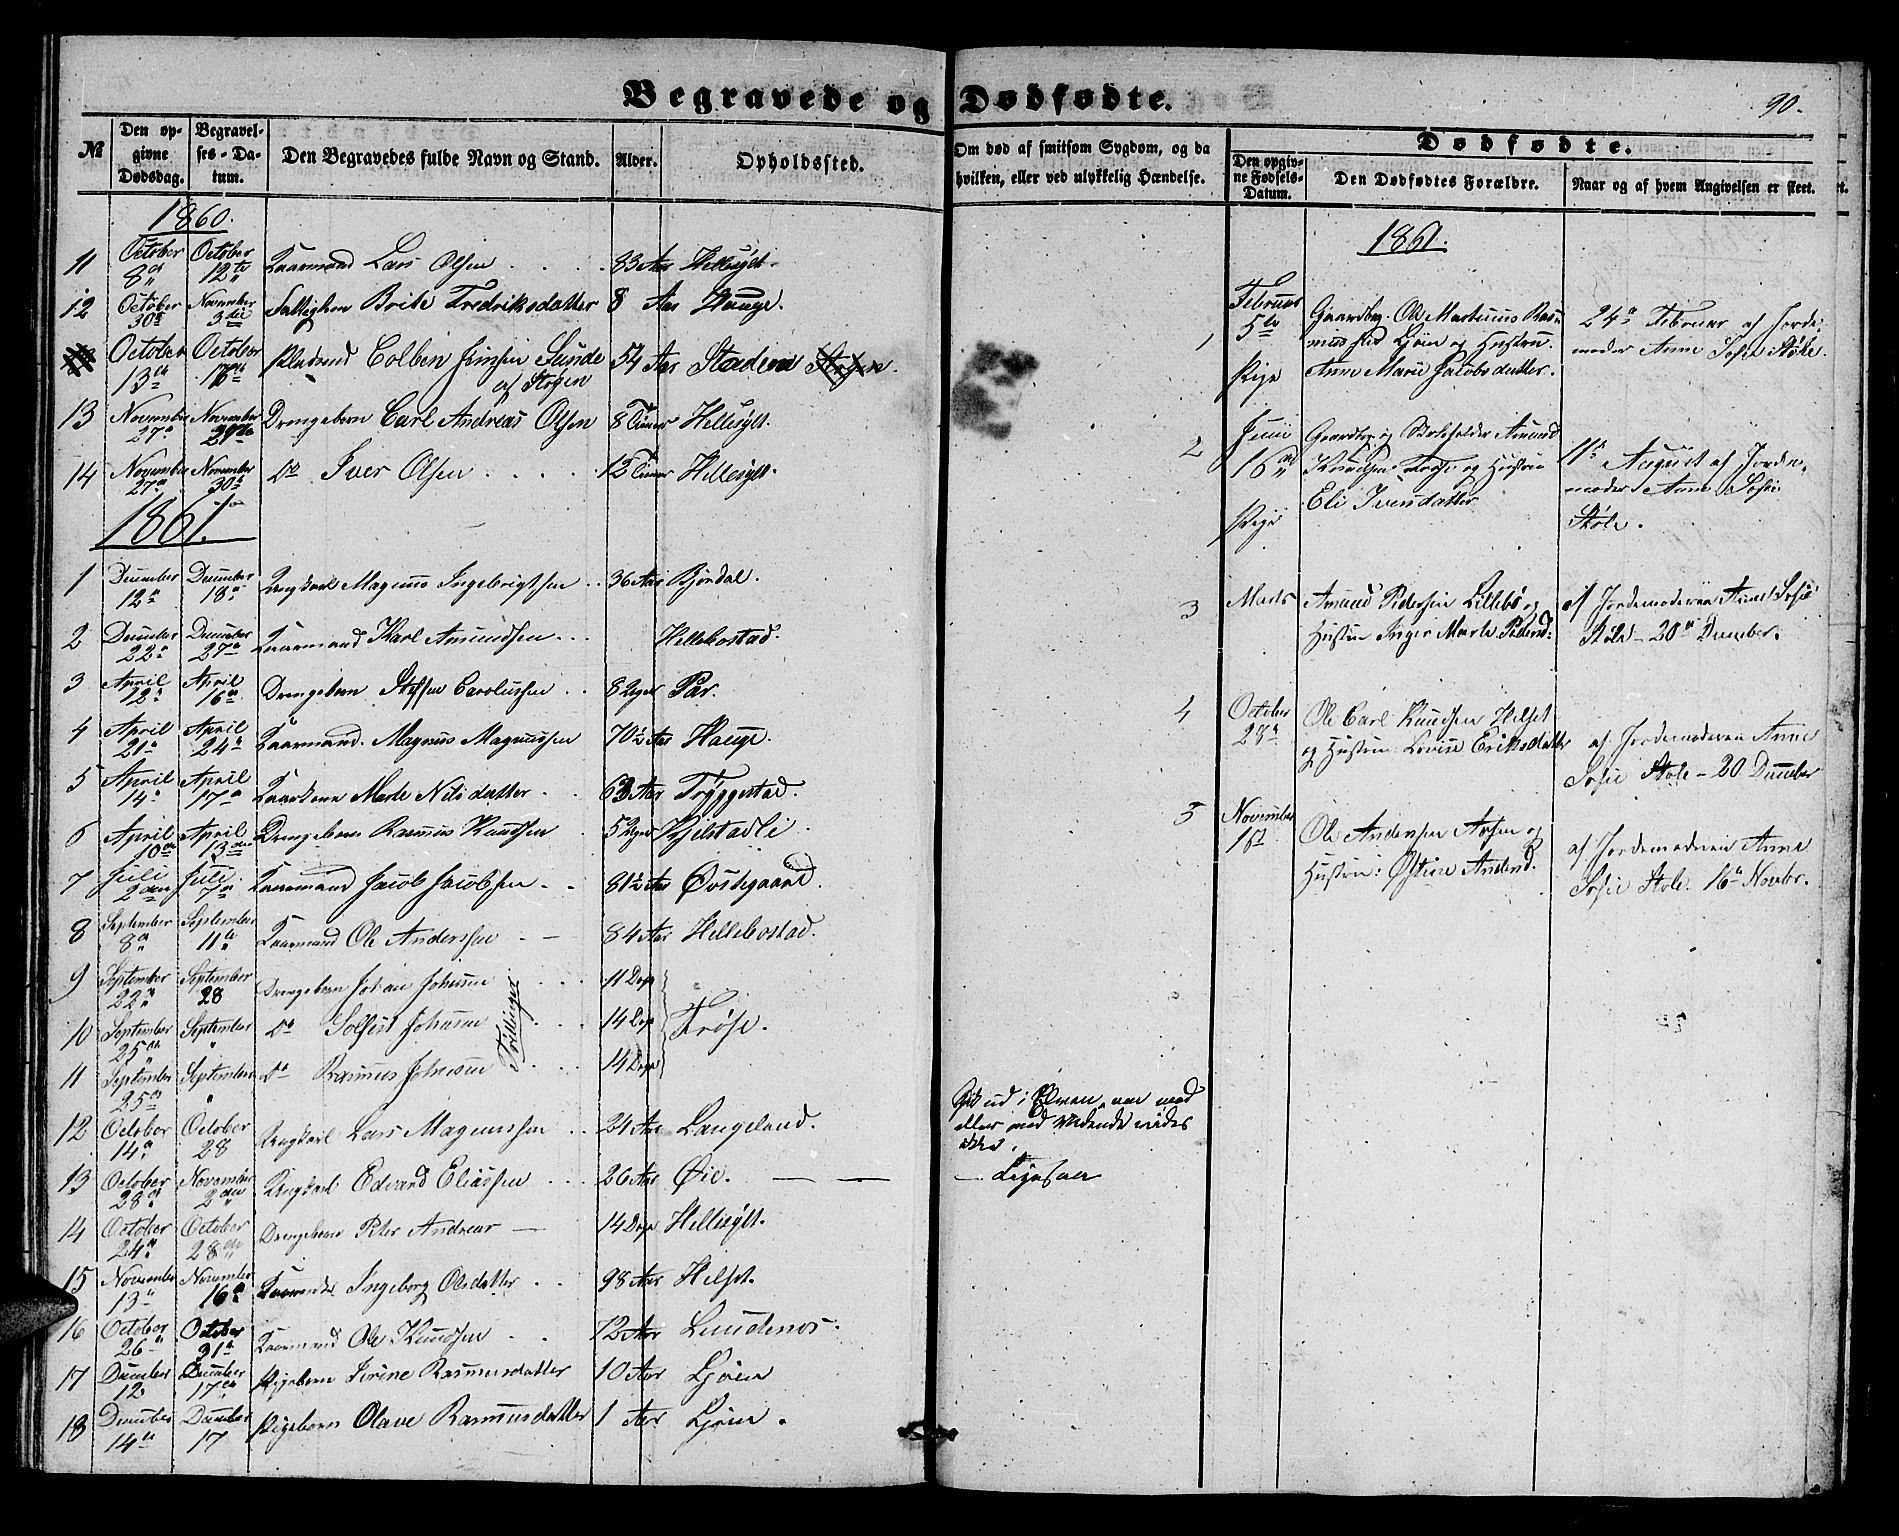 Begravede og Dødfødte.
90.
No
Den opgivne Dødsdag.
Begravelses-Datum.
Den Begravedes fulde Navn og Stand.
Alder.
Opholdssted.
Om død af smitsom Sygdom, og da
hvilken, eller ved ulykkelig Hændelse.
Dødfødte.
Den opgivne Fødsels-Datum.
Den Dødfødtes Forældre.
Naar og af hvem Angivelsen er skeet.
1860.
11 October 8de October 12te Kaarmand Lars Olsen 83 Aar Hellesylt.
12 October 30te November 3die Brite Fredriksdatter 8 Aar Hauge.
October 13de October 16de Colben Jensen Sunde 54 Aar
13 November 27de November 29de Drengebarn Carl Andreas Olsen 8 Timer Hellesylt.
14 November 27de November 30te Do Iver Olsen 12 Timer Hellesylt.
1861.
1 December 12te December 18de Ungkarl Magnus Ingebrigtsen 36 Aar Bjørdal.
2 December 22de December 27de Kaarmand Karl Amundsen Hellebostad.
3 April 12te April 16de Drengebarn Steffen Carolussen 8 Uger
4 April 21de April 24de Kaarmand Magnus Magnussen 70½ Aar Hauge.
5 April 14de April 17de Kaarkone Marte Nilsdatter 63 Aar Tryggestad.
6 April 10de April 13de Drengebarn Rasmus Knudsen 5 Uger Kjelstadli
7 Juli 2den Juli 7de Kaarmand Jacob Jacobsen 81½ Aar Øvstegaard.
8 September 8de September 11te Kaarmand Ole Anderssen 84 Aar Hellebostad.
9 September 22de September 28 Drengebarn Johan Johnsen 11 Dage
10 September 25de September " Do Solfest Johnsen 14 Dage Frøse.
11 September 25de September " Do Rasmus Johnsen 14 Dage
Trillinger
12 October 14de October 28 Ungkarl Lars Magnussen 24 Aar Langeland. Gik ud i Elven, om med
eller mod Vidende vides
ikke.
13 October 28de November 2den Ungkarl Edvard Eliassen 26 Aar Øie.
14 October 24de October 28de Drengebarn Peter Andreas 14 Dage Hellesylt.
15 November 13de November 16de Ingeborg Olsdatter 98 Aar Helset.
16 October 26de October 31te Kaarmand Ole Knudsen 72 Aar
17 December 12 December 17de Pigebarn Sirine Rasmusdatter 10 Aar Ljøen
18 December 14de December 17 Pigebarn Olave Rasmusdatter 1 Aar Ljøen.
1861.
1 Februar 5te Pige
Gaardbrg. Ole Martinus Rasmussen Ljøen og Hustru
Anne Marie Jacobsdatter.
24de Februar af Jordemoder Anne Sofie Støle.
2 Juni 16de Pige
Gaardbrg og Amund
Knudsen Frøse og Hustru
Eli Iversdatter
11te August af Jordemoder Anne Sofie
Støle.
3 Marts
Amund Pedersen Lillebø og
Hustru Inger Marte Pedersd:
af Jordemoderen Anne Sofie
Støle - 20de December.
4 October 28de
Ole Carl Knudsen Helset
og Hustru: Lovise Eriksdatter
af Jordemoderen Anne
Sofie Støle - 20 December
5 November 1ste
Ole Andersen og
Hustru: Anders d.
af Jordemoderen Anne
Sofie Støle. 16de Novbr.